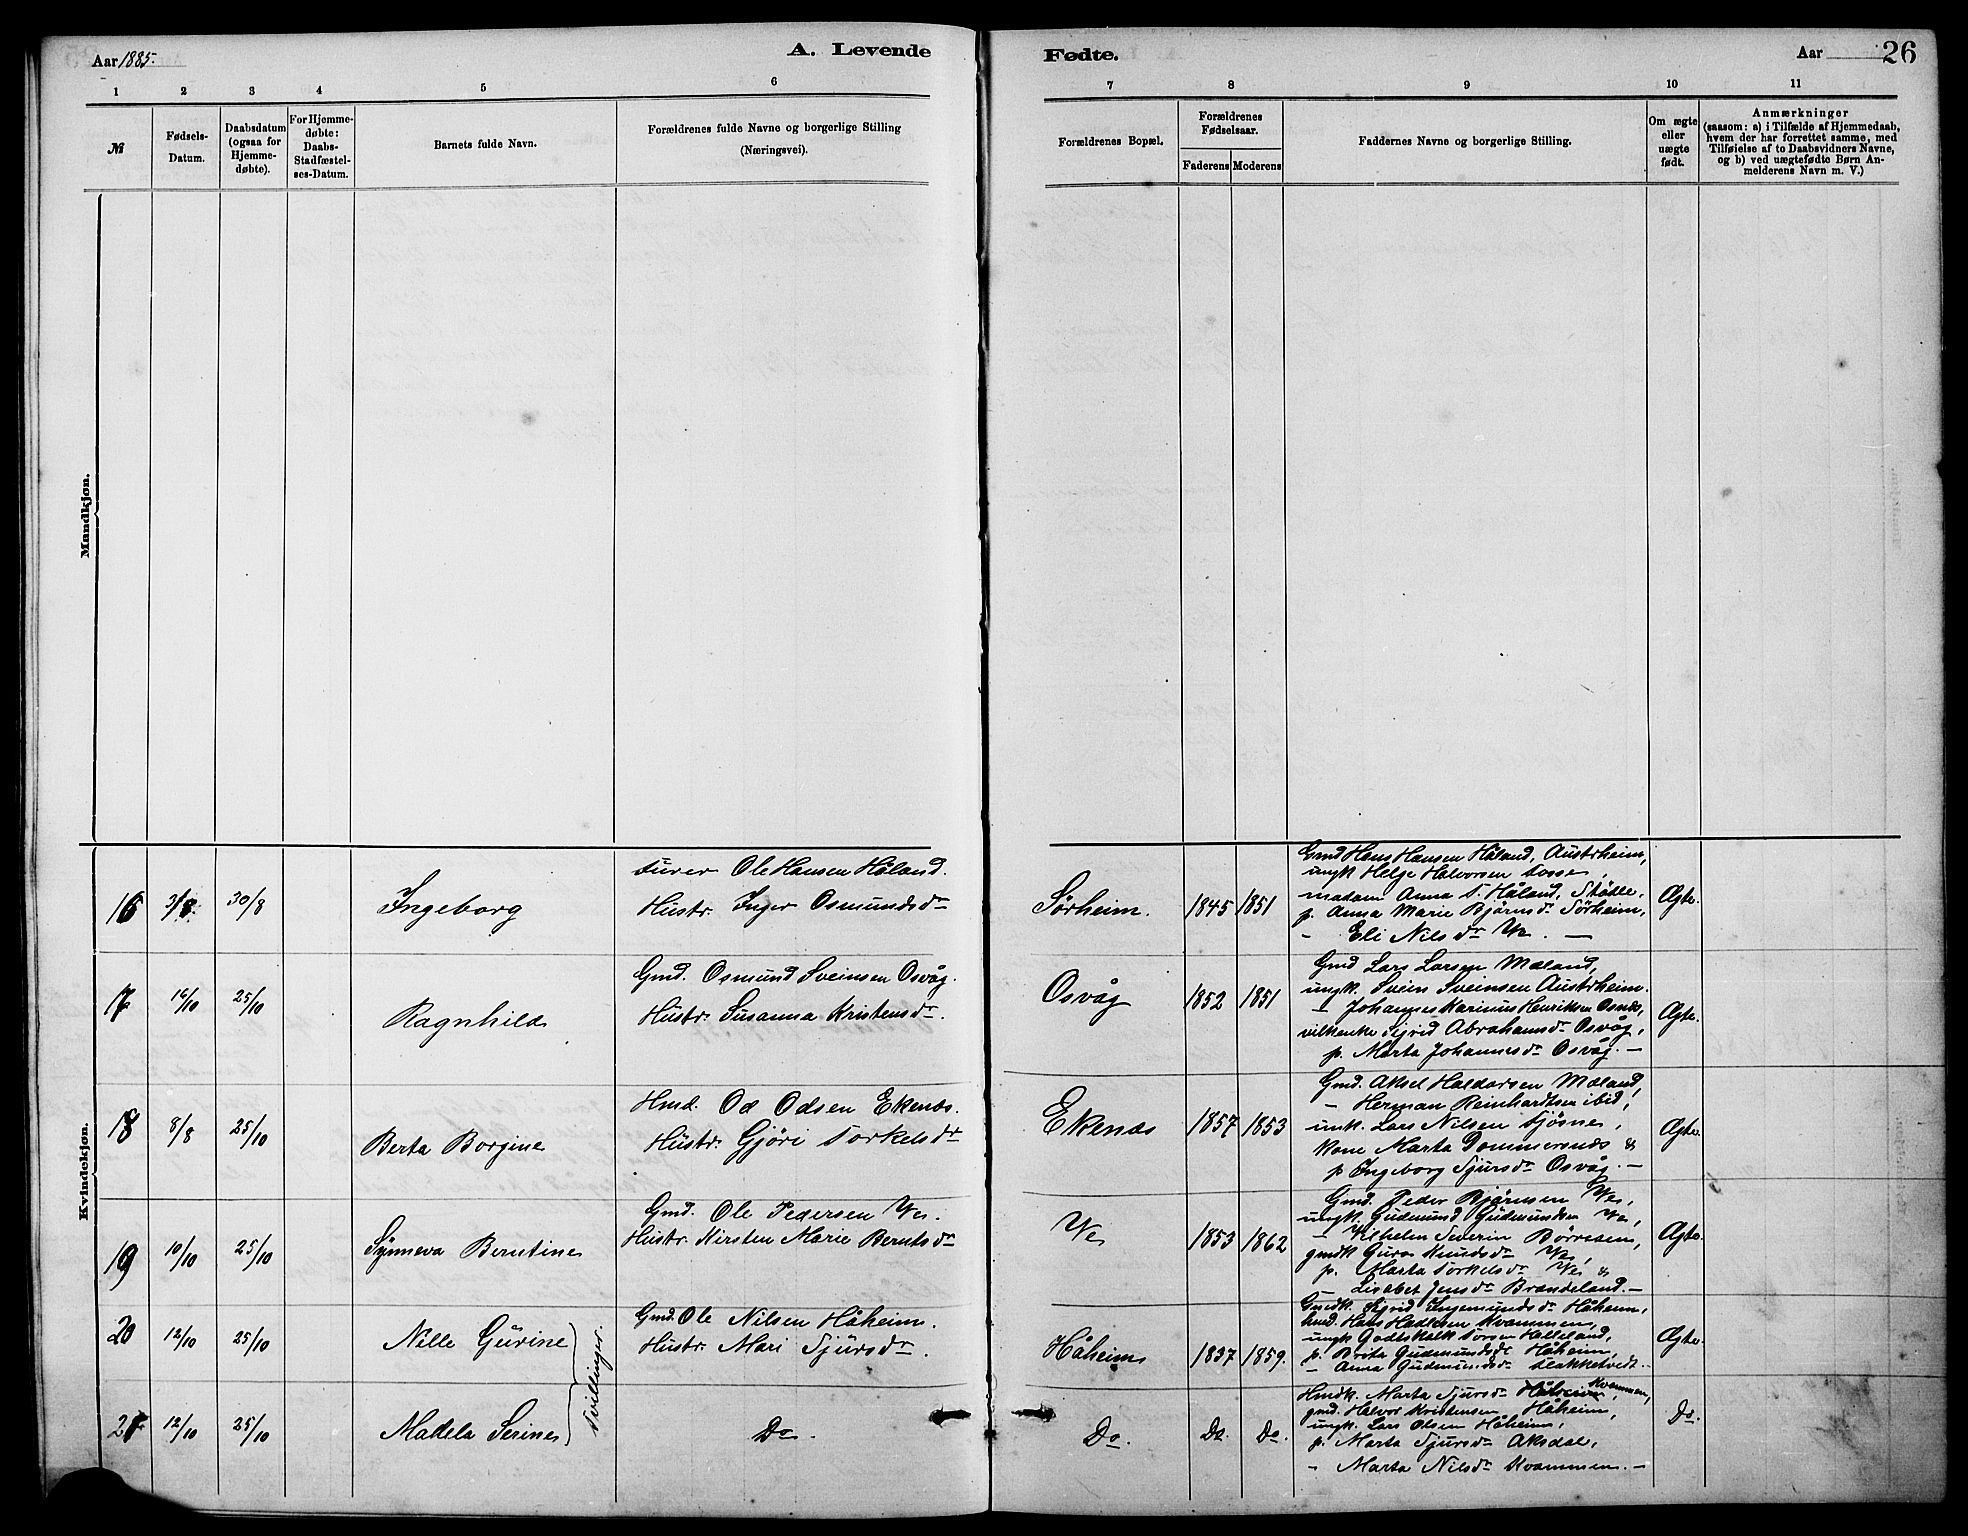 Aar 1885.
A. Levende
Fødte.
Aar
26
1 2 3 4 5 6 7 8 9 10 11
№
Fødsels-
Datum.
Daabsdatum
(ogsaa for
Hjemme-
døbte).
For Hjemme-
døbte:
Daabs-
Stadfæstel-
ses-Datum.
Barnets fulde Navn.
Forældrenes fulde Navne og borgerlige Stilling
(Næringsvei).
Forældrenes Bopæl.
Forældrenes
Fødselsaar.
Faderens Moderens
Faddernes Navne og borgerlige Stilling.
Om ægte
eller
uægte
født.
Anmærkninger
(saasom: a) i Tilfælde af Hjemmedaab,
hvem der har forrettet samme, med
Tilføielse af to Daabsvidners Navne,
og b) ved uægtefødte Børn An-
melderens Navn m. V.)
Mandkjøn.
Kvindekjøn.
16 3/8. 30/8
Ingeborg
Ole Hansen Håland.
Hustr. Inger Osmundsdr
Sørheim.
1845 1851
Gmd Hans Hansen Håland, Austrheim,
ungk Helge Halvorsen
madam Anna T. Håland, Stødle,
p. Anna Marie Bjørnsdr Sørheim,
- Eli Nilsdr Ve. —
Ægte.
17 16/10 25/10
Ragnhild
Gmd. Osmund Sveinsen Osvåg.
Hustr. Susanna Kristensdr.
Osvåg
1852 1851
Gmd Lars Larsen Mæland,
ungk. Svein Sveinsen Austrheim.
- Johannes Karinius Henriksen
Sigrid Abrahamsdr Osvåg,
p. Marta Johannesdr Osvåg. —
Ægte.
18 8/8 25/10
Berta Borgine
Hmd. Od Odsen Ekenæs.
Hustr. Gjøri Torkelsdr
Ekenæs
1857 1853
Gmd. Aksel Haldorsen Mæland,
- Herman Reinhardtsen ibid,
ungk. Lars Nilsen
Kone Marta &
p Ingeborg Sjursdr Osvåg. —
Ægte.
19 10/10 25/10
Synneva Berntine
Gmd. Ole Pedersen Ve.
Hustr. Kirsten Marie Berntsdr
Ve
1853 1862
Gmd. Peder Bjørnsen Ve,
ungk. Gudmund Gudmundsen Ve,
- Vilhelm Severin Børresen,
gmdk Guro Knudsdr Ve,
p. Marta Torkelsdr Ve &
- Lisebet Jensdr Brandeland. —
Ægte.
20 12/10 25/10
Nille Gurine
Tvillinger.
Gmd. Ole Nilsen Håheim.
Hustr. Mari Sjursdr.
Håheim
1837 1859.
Gmdk. Sigrid Ingemundsdr Håheim,
hmd. Hans Kvammen,
ungk Godtskalk Torsen Helleland,
p. Brita Gudmundsdr Håheim,
- Anna Gudmundsdr Slakketvedt.
Ægte.
21 12/10 25/10
Madela Serine
Do.
Do. Do. Do.
Hmdk. Marta Sjursdr Håheim Kvammen,
gmd. Halvor Kristensen Håheim,
ungk. Lars Olsen Håheim,
p. Marta Sjursdr Aksdal,
- Marta Nilsdr Kvammen. —
Do.